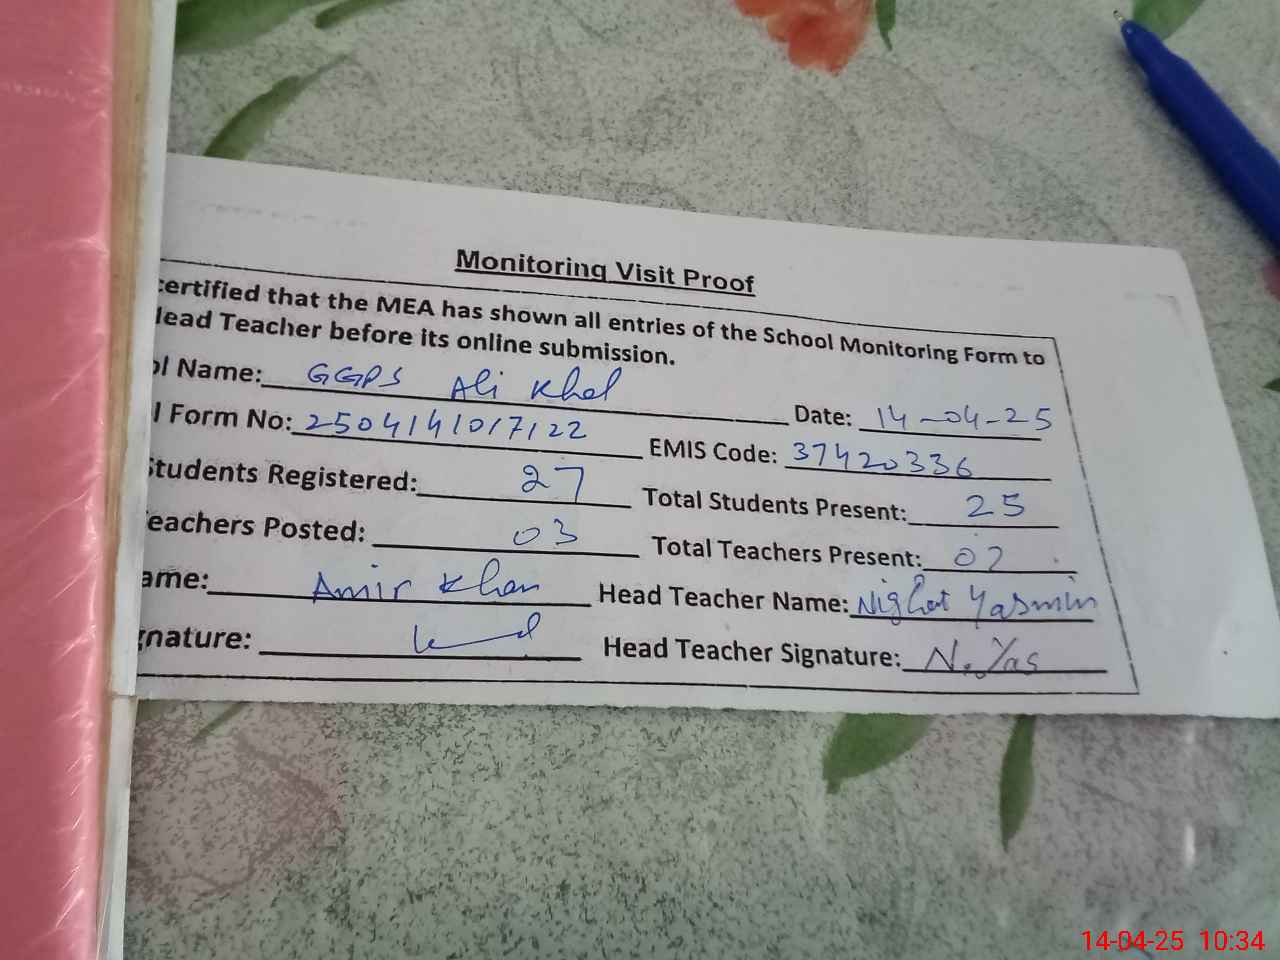 Monitoring Visit Proof
certified that the MEA has shown all entries of the School Monitoring Form to
Head Teacher before its online submission.
ol Name: GGPS Ali Khel Date: 14-04-25
l Form No: 2504141017122 EMIS Code: 37420336
Students Registered: 27 Total Students Present: 25
Teachers Posted: 03 Total Teachers Present: 02
ame: Amir Khan Head Teacher Name: Nighat Yasmin
gnature: Head Teacher Signature: N. Yas
14-04-25 10:34